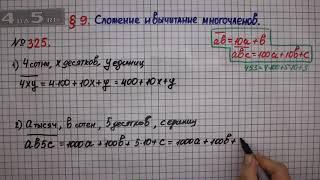 4 GDZ.RU
§ 9. Сложение и вычитание многочленов.
№ 325.
ab=10a+b
abc=100a+10b+c
453=4·100+5·10+3
1) 4 сотни, x десятков, y единиц
4xy = 4·100+10x+y = 400+10x+y
2) a тысяч, b сотен, 5 десятков, c единиц
ab5c = 1000a+100b+5·10+c = 1000a+100b+